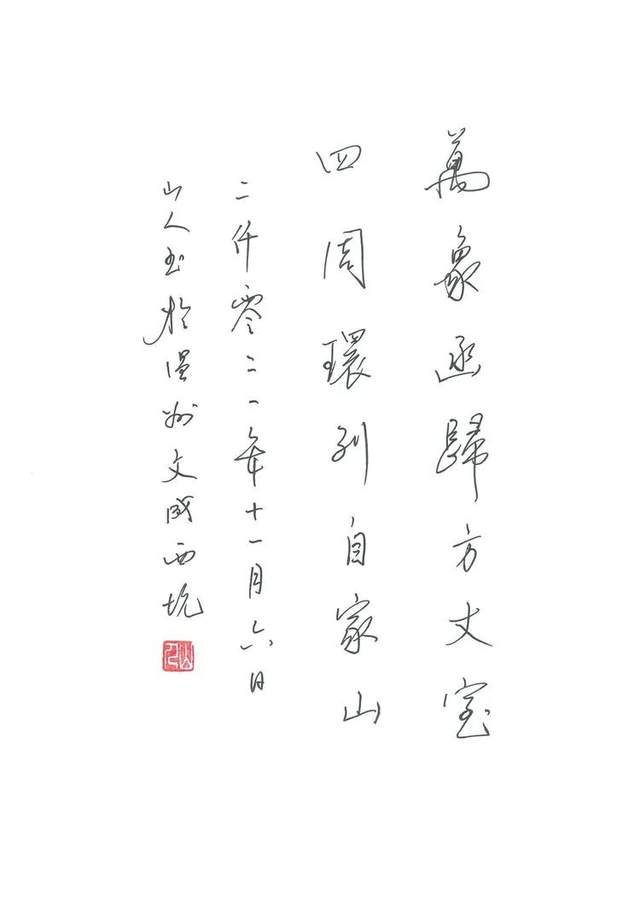 萬象函歸方丈室
四周環列自家山
二仟零二一年十一月六日
山人书於溫州文成西坑
山人